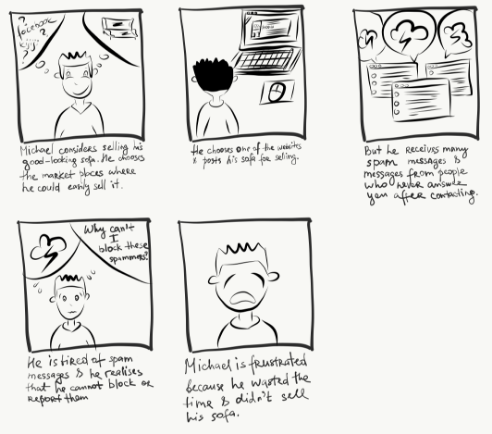 ?
facebook
Kijiji ?
?
Michael considers selling his
good-looking sofa. He chooses
the market places where
he could easily sell it.
He chooses one of the websites
& posts his sofa for selling.
But he receives many
spam messages &
messages from people
who never answer
you after contacting.
Why can't
I
block these
spammers?
He is tired of spam
messages & he realises
that he cannot block or
report them
Michael is frustrated
because he wasted the
time & didn't sell
his sofa.